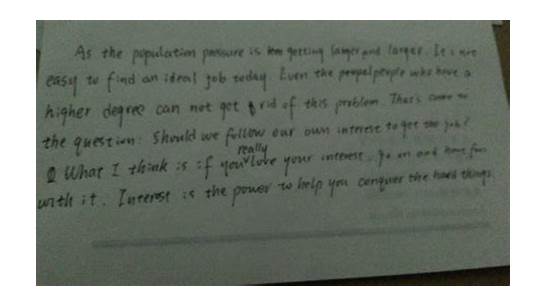 As the population pressure is getting larger and larger. It's not
easy to find an ideal job today. Even the people who have a
higher degree can not get rid of this problem. That's come to
the question: Should we follow our own interest to get the job?
What I think is if you really love your interest, go on and have fun
with it. Interest is the power to help you conquer the hard things.